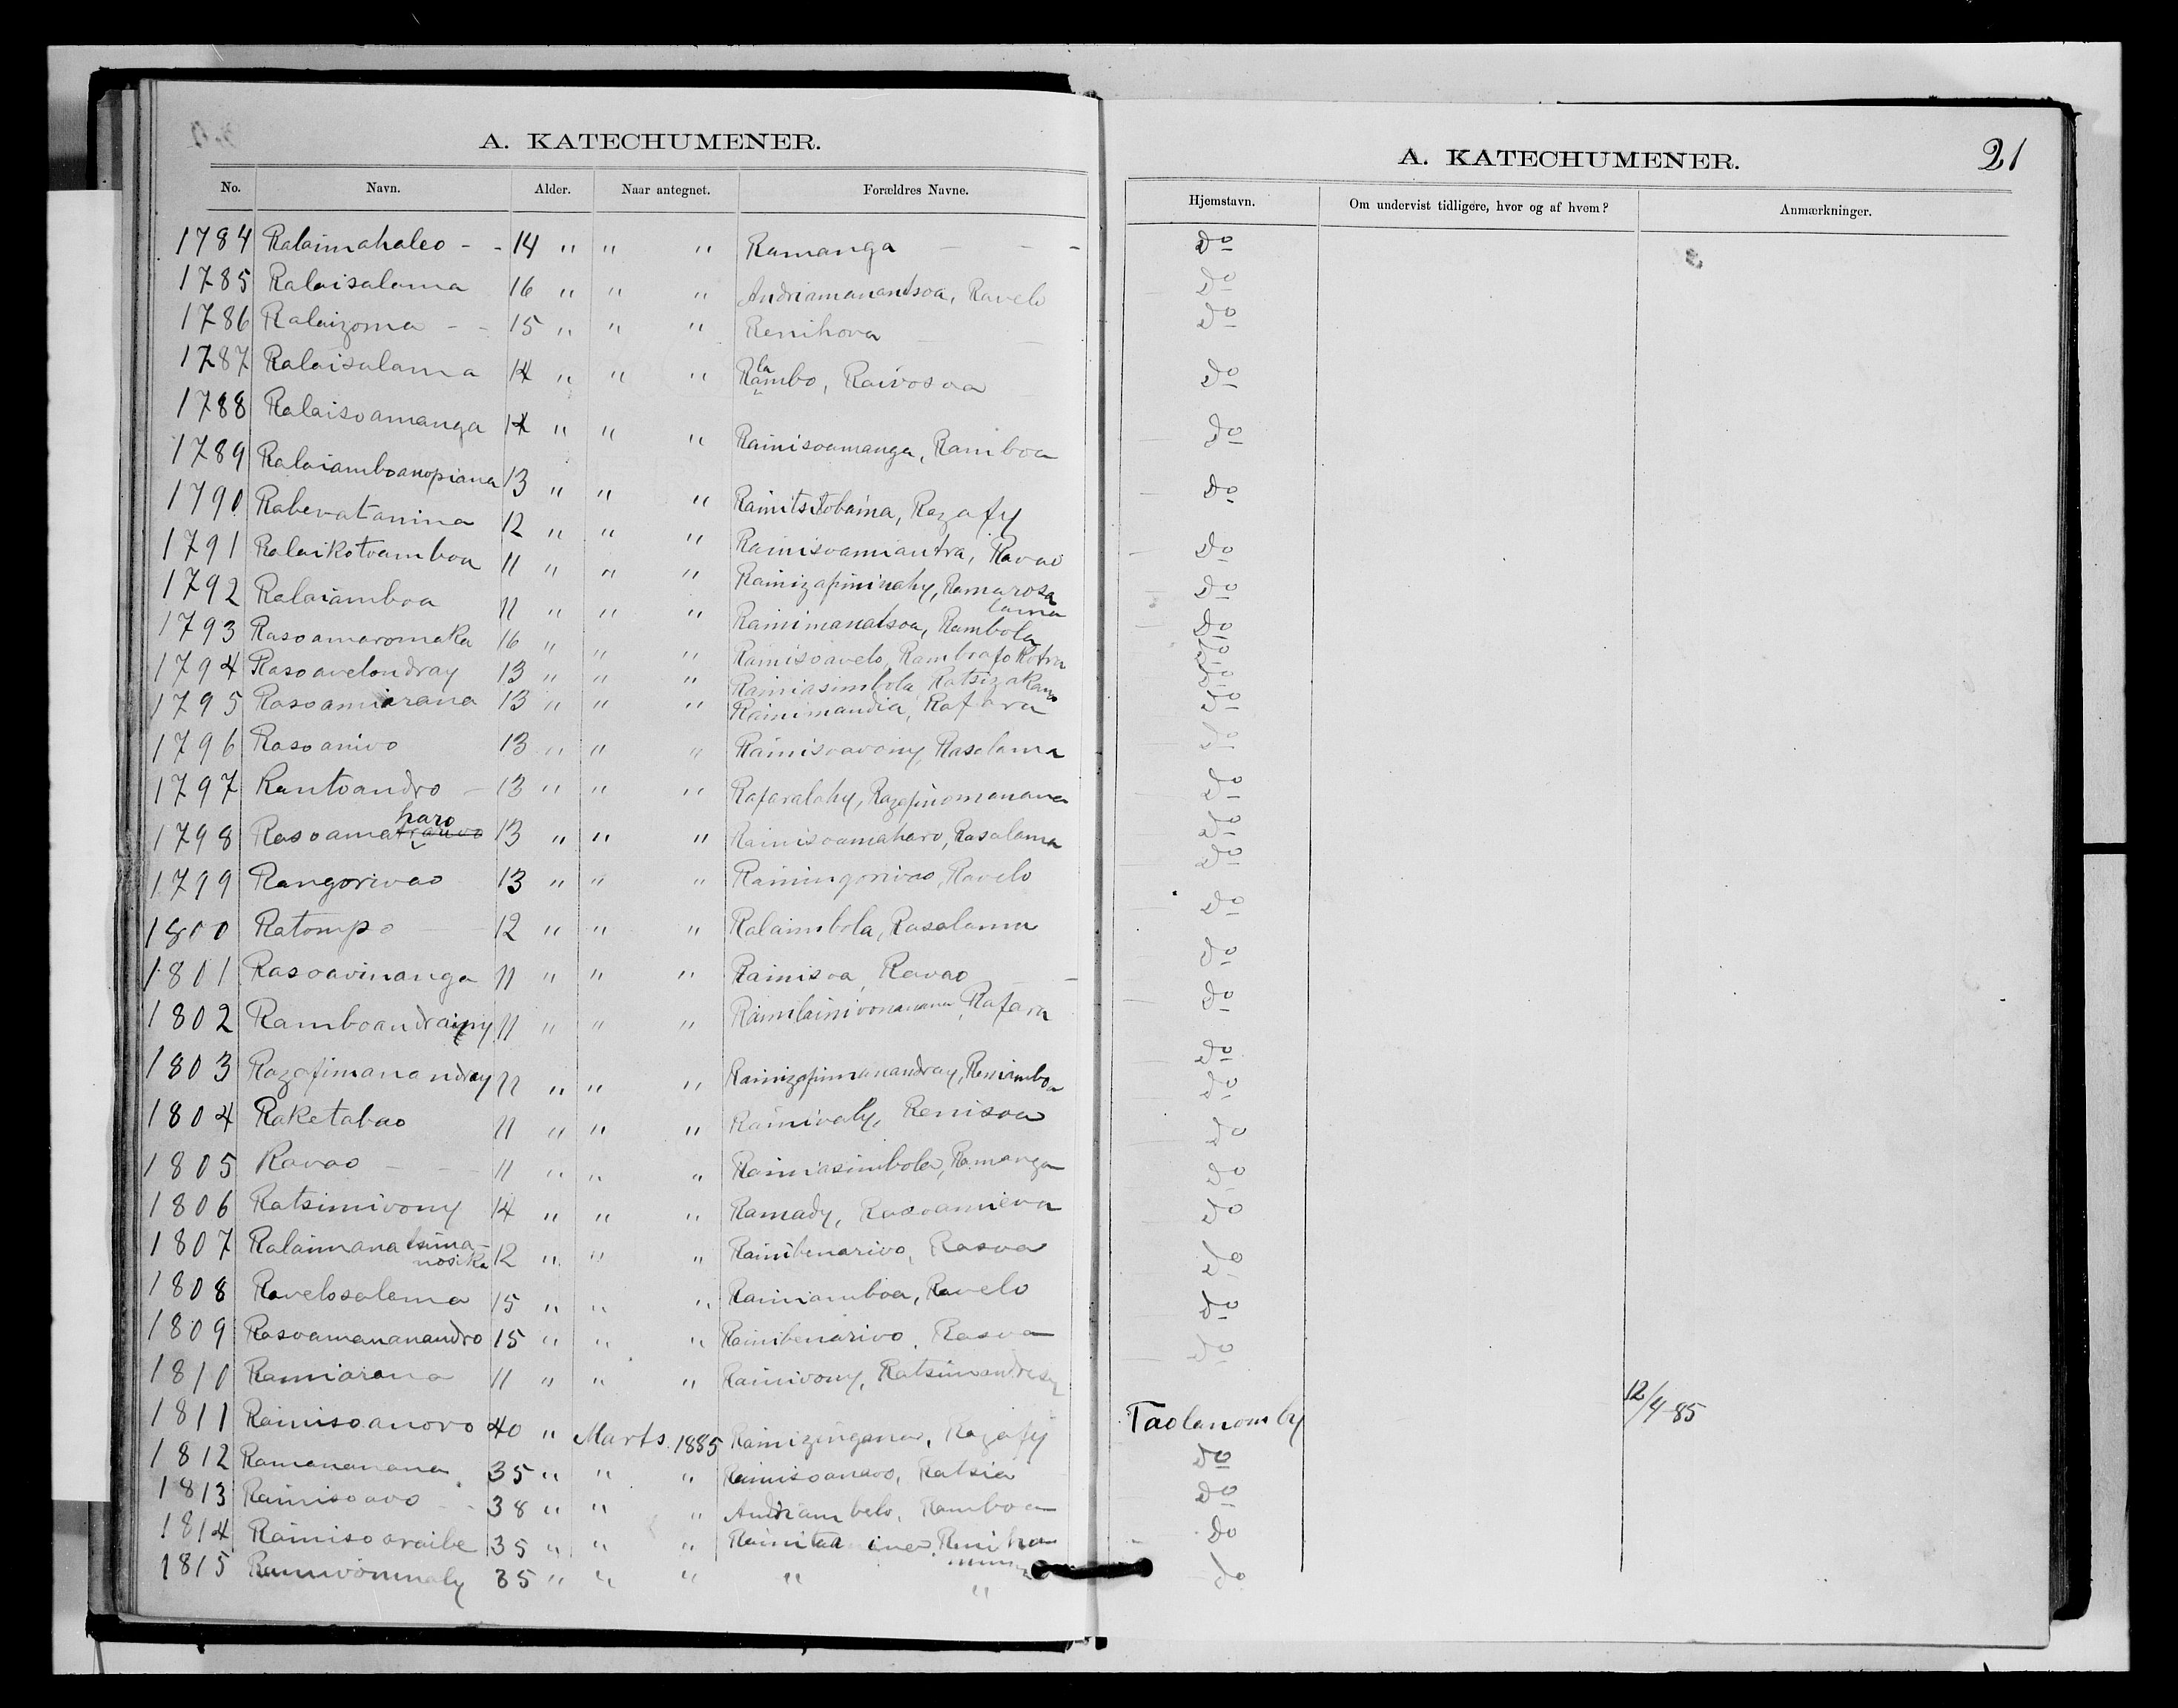 A. KATECHUMENER.
No. Navn. Alder. Naar antegnet. Forældres Navne.
1784 Ralaimahaleo - - 14 " " " Ramanga - - -
1785 Ralaisalama 16 " " " Andriamanantsoa, Ravelo
1786 Ralaizoma - - 15 " " " Renihova
1787 Ralaisalama 14 " " " Ralambo, Raivosoa
1788 Ralaisoamanga 14 " " " Rainisoamanga, Ramboa
1789 Ralaiamboanopiana 13 " " " Rainitsitobaina, Razafy
1790 Rabevatanina 12 " " " Rainisoamiantra, Ravao
1791 Ralaikotoamboa 11 " " " Rainizafininahy, Ramarosa
lama
1792 Ralaiamboa 11 " " " Rainimanatsoa, Rambola
1793 Rasoamaromaka 16 " " " Rainisoavelo, Ramboafokotra
1794 Rasoavelondray 13 " " " Rainiasimbola, Ratsizakano
1795 Rasoamiarana 13 " " " Rainimandia, Rafara
1796 Rasoanivo 13 " " " Rainisoavony, Rasalama
1797 Rantoandro - 13 " " " Rafaralahy, Razafinomanana
haro
1798 Rasoama 13 " " " Rainisoamaharo, Rasalama
1799 Rangorivao 13 " " " Rainingorivao, Ravelo
1800 Ratompo 12 " " " Ralaimbola, Rasalama
1801 Rasoavinanga 11 " " " Rainisoa, Ravao
1802 Ramboandrainy 11 " " " Rafara
1803 Razafimanandray 11 " " " Rainizafimanandray, Reniamboa
1804 Raketabao 11 " " " Rainivaly, Renisoa
1805 Ravao - - 11 " " " Rainiasimbola, Ramanga
1806 Ratsimivony 14 " " " Ramady, Rasoamieva
1807 Ralaimanatsima-
nosika 12 " " " Rainibenarivo, Rasoa
1808 Ravelosalama 15 " " " Rainiamboa, Ravelo
1809 Rasoamananandro 15 " " " Rainibenarivo, Rasoa
1810 Ramiarana 11 " " " Rainivony, Ratsimandresy
1811 Rainisoanoro 40 " Marts 1885 Rainizingana, Razafy
1812 Ramananana 35 " " " Rainisoanavo, Ratsia
1813 Rainisoavo - - 38 " " " Andriambelo, Ramboa
1814 Rainisoaraibe 35 " " " Reniha
1815 35 " " " " "
A. KATECHUMENER. 21
Hjemstavn. Om undervist tidligere, hvor og af hvem? Anmærkninger.
Do
Do
Do
Do
Do
Do
Do
Do
Do
Do
Do
Do
Do
Do
Do
Do
Do
Do
Do
Do
Do
Do
Do
Do
Do
Do
Do
Taolanomby 12/4-85
Do
Do
Do
Do